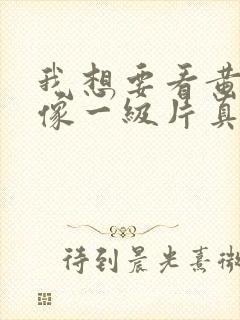 我想要看黄
像一级片真
待到晨光熹微